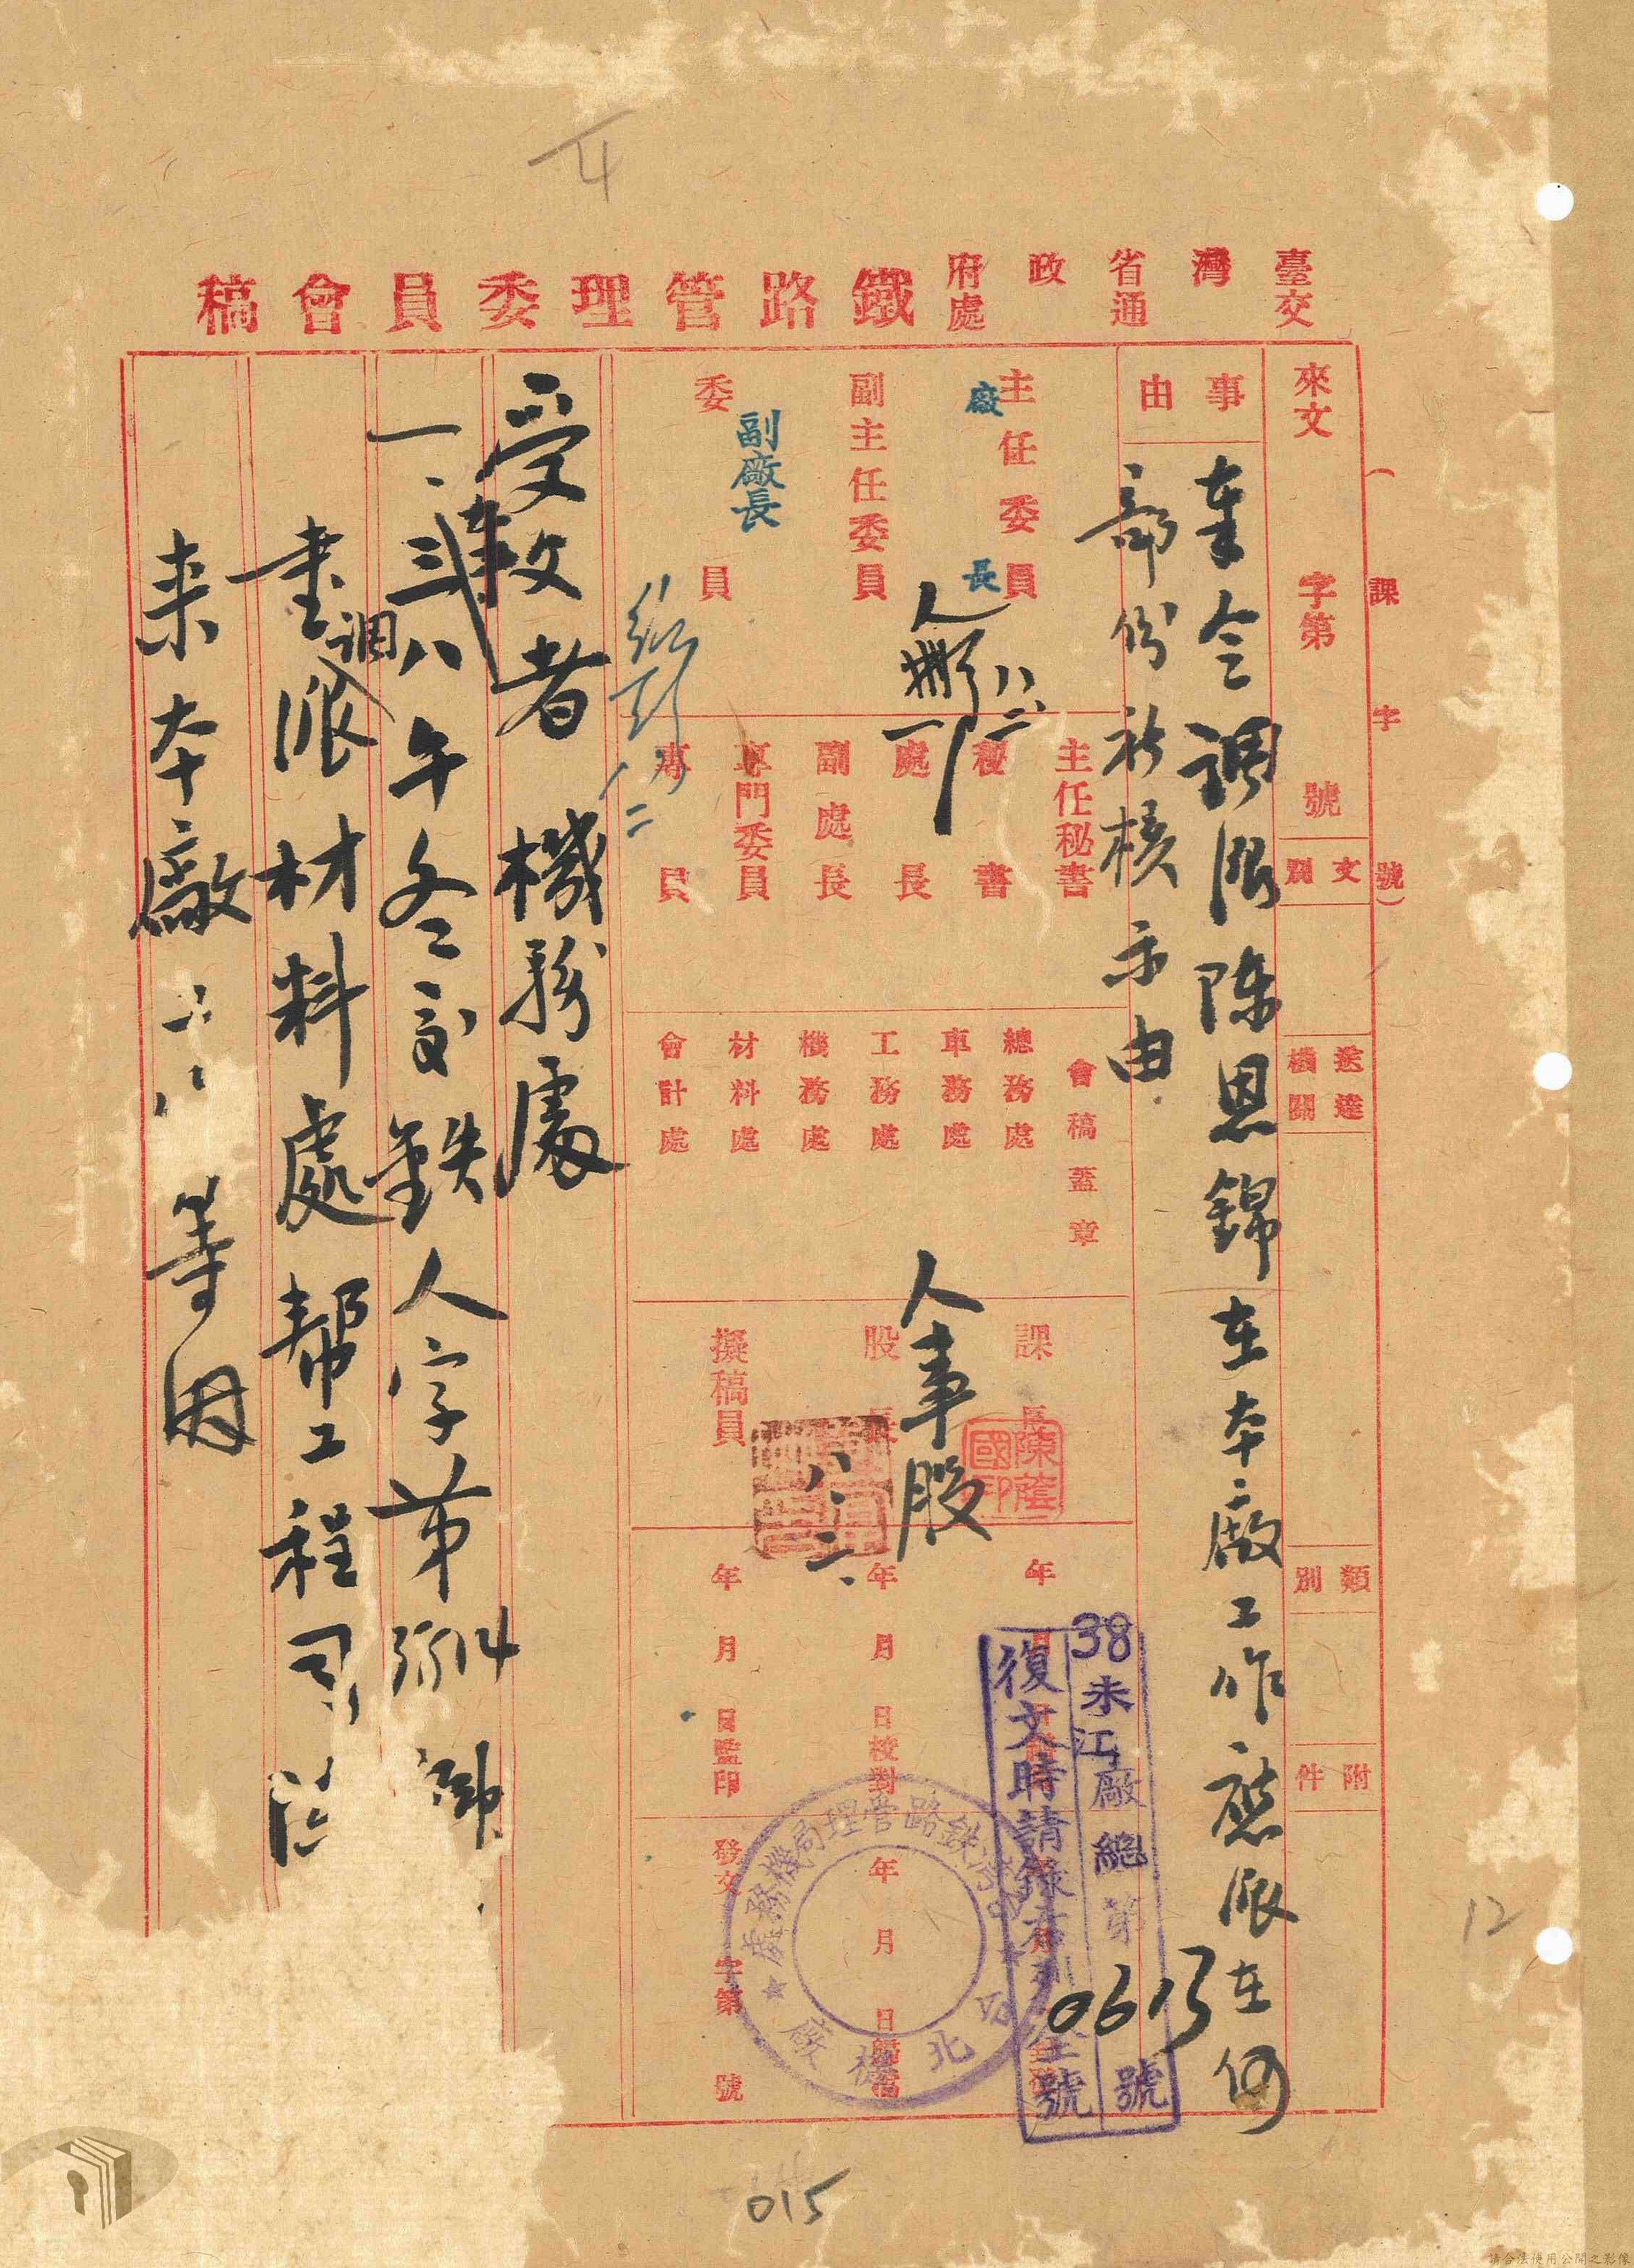 臺灣省政府
交通處
鐵路管理委員會稿
（課字號）
來文 字第 號
文別
送達機關
類別
附件
事由
奉令調派陳恩錦在本廠工作應派在何
部份祈核示由
主任委員
廠長
副主任委員
委員
副廠長
主任秘書
秘書
處長
副處長
專門委員
專員
會稿蓋章
總務處
車務處
工務處
機務處
材料處
會計處
課長
陳蔭國印
股長
人事股
擬稿員
八、二、
年月日
年月日校對
年月日監印
年月日
發文 字第 號
38未江廠總第0613號
復文時請錄
全號
機務處
台北機廠
受文者 機務處
一、奉三八午冬交鉄人字第
畫調派材料處幫工程司
來本廠
等因
12
015
請合法使用公開之影像